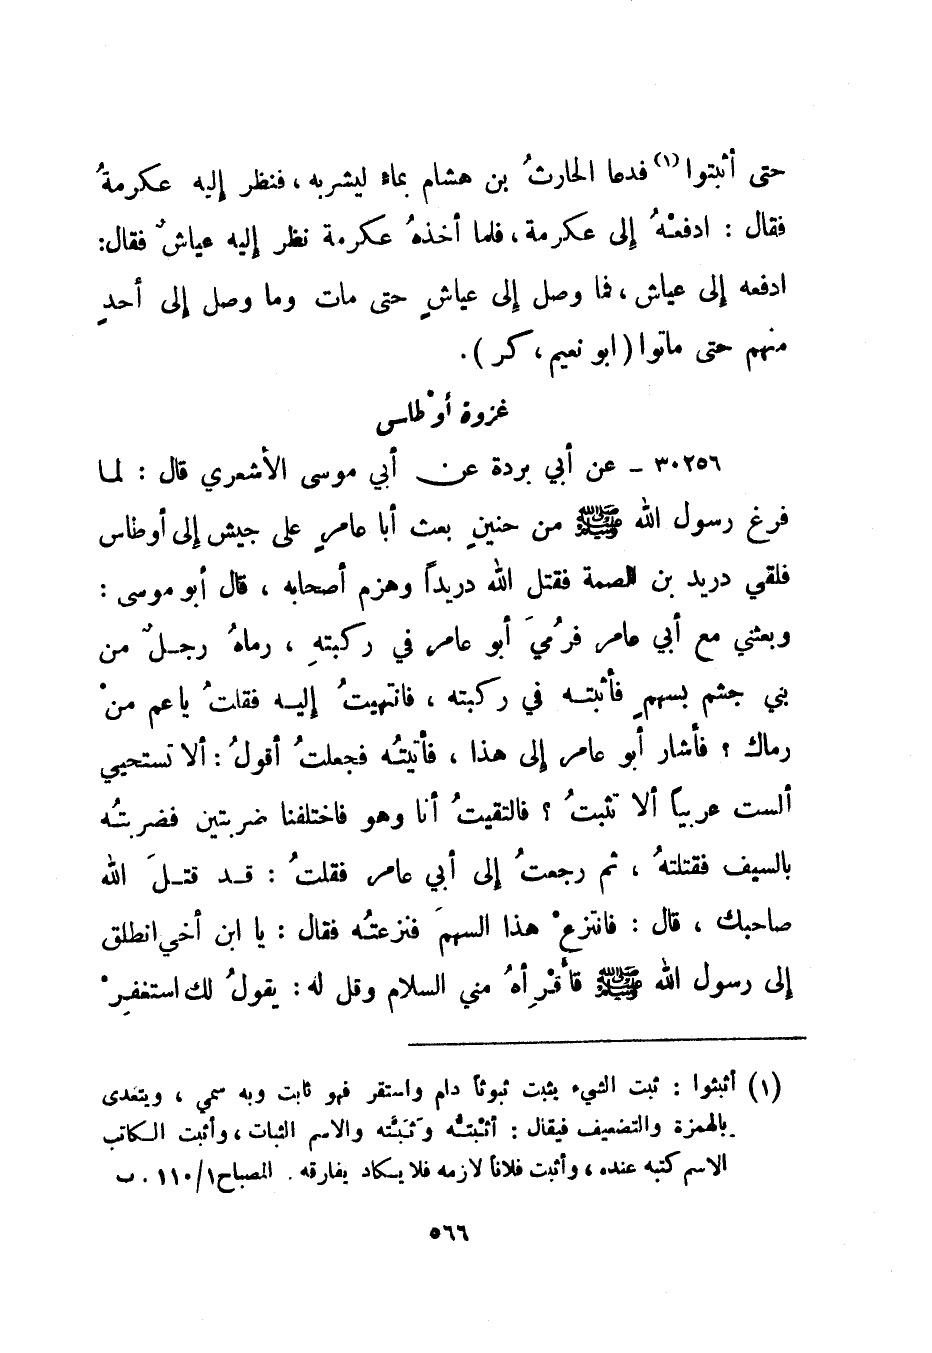 حتى أثبتوا(١) فدعا الحارثُ بن هشام بماء ليشربه ، فنظر إليه عكرمةُ
فقال : ادفعْهُ إلى عكرمة ، فلما أخذهُ عكرمة نظر إليه عياشٌ فقال:
ادفعه إلى عياش ، فما وصل إلى عياشٍ حتى مات وما وصل إلى أحدٍ
منهم حتى ماتوا ( ابو نعيم ، كر ) .
غزوة أوْطاس
٣٠٢٥٦ - عن أبي بردة عن أبي موسى الأشعري قال : لما
فرغ رسول الله ﷺ من حنينٍ بعث أبا عامرٍ على جيش إلى أوطاس
فلقي دريد بن الصمة فقتل الله دريداً وهزم أصحابه ، قال أبو موسى :
وبعثني مع أبي عامر فرُميَ أبو عامر في ركبتهِ ، رماهُ رجلٌ من
بني جشم بسهمٍ فأثبته في ركبته ، فانتهيتُ إليه فقلتُ يا عم منْ
رماك ؟ فأشار أبو عامر إلى هذا ، فأتيتُه فجعلتُ أقولُ : ألا تستحيي
ألست عربياً ألا تثبتُ ؟ فالتقيتُ أنا وهو فاختلفنا ضربتين فضربتُه
بالسيف فقتلتهُ ، ثم رجعتُ إلى أبي عامر فقلتُ : قد قتلَ الله
صاحبك ، قال : فانتزعْ هذا السهمَ فنزعتُه فقال : يا ابن أخي انطلق
إلى رسول الله ﷺ فأقْرِأهُ مني السلام وقل له : يقولُ لك استغفرْ
(١) أثبثوا : ثبت الشيء يثبت ثبوتاً دام واستقر فهو ثابت وبه سمي ، ويتعدى
بالهمزة والتضعيف فيقال : أثبتُّه وثبَّتَّه والاسم الثبات ، وأثبت الكاتب
الاسم كتبه عنده ، وأثبت فلاناً لازمه فلا يكاد يفارقه . المصباح ١١٠/١ . ب
٥٦٦